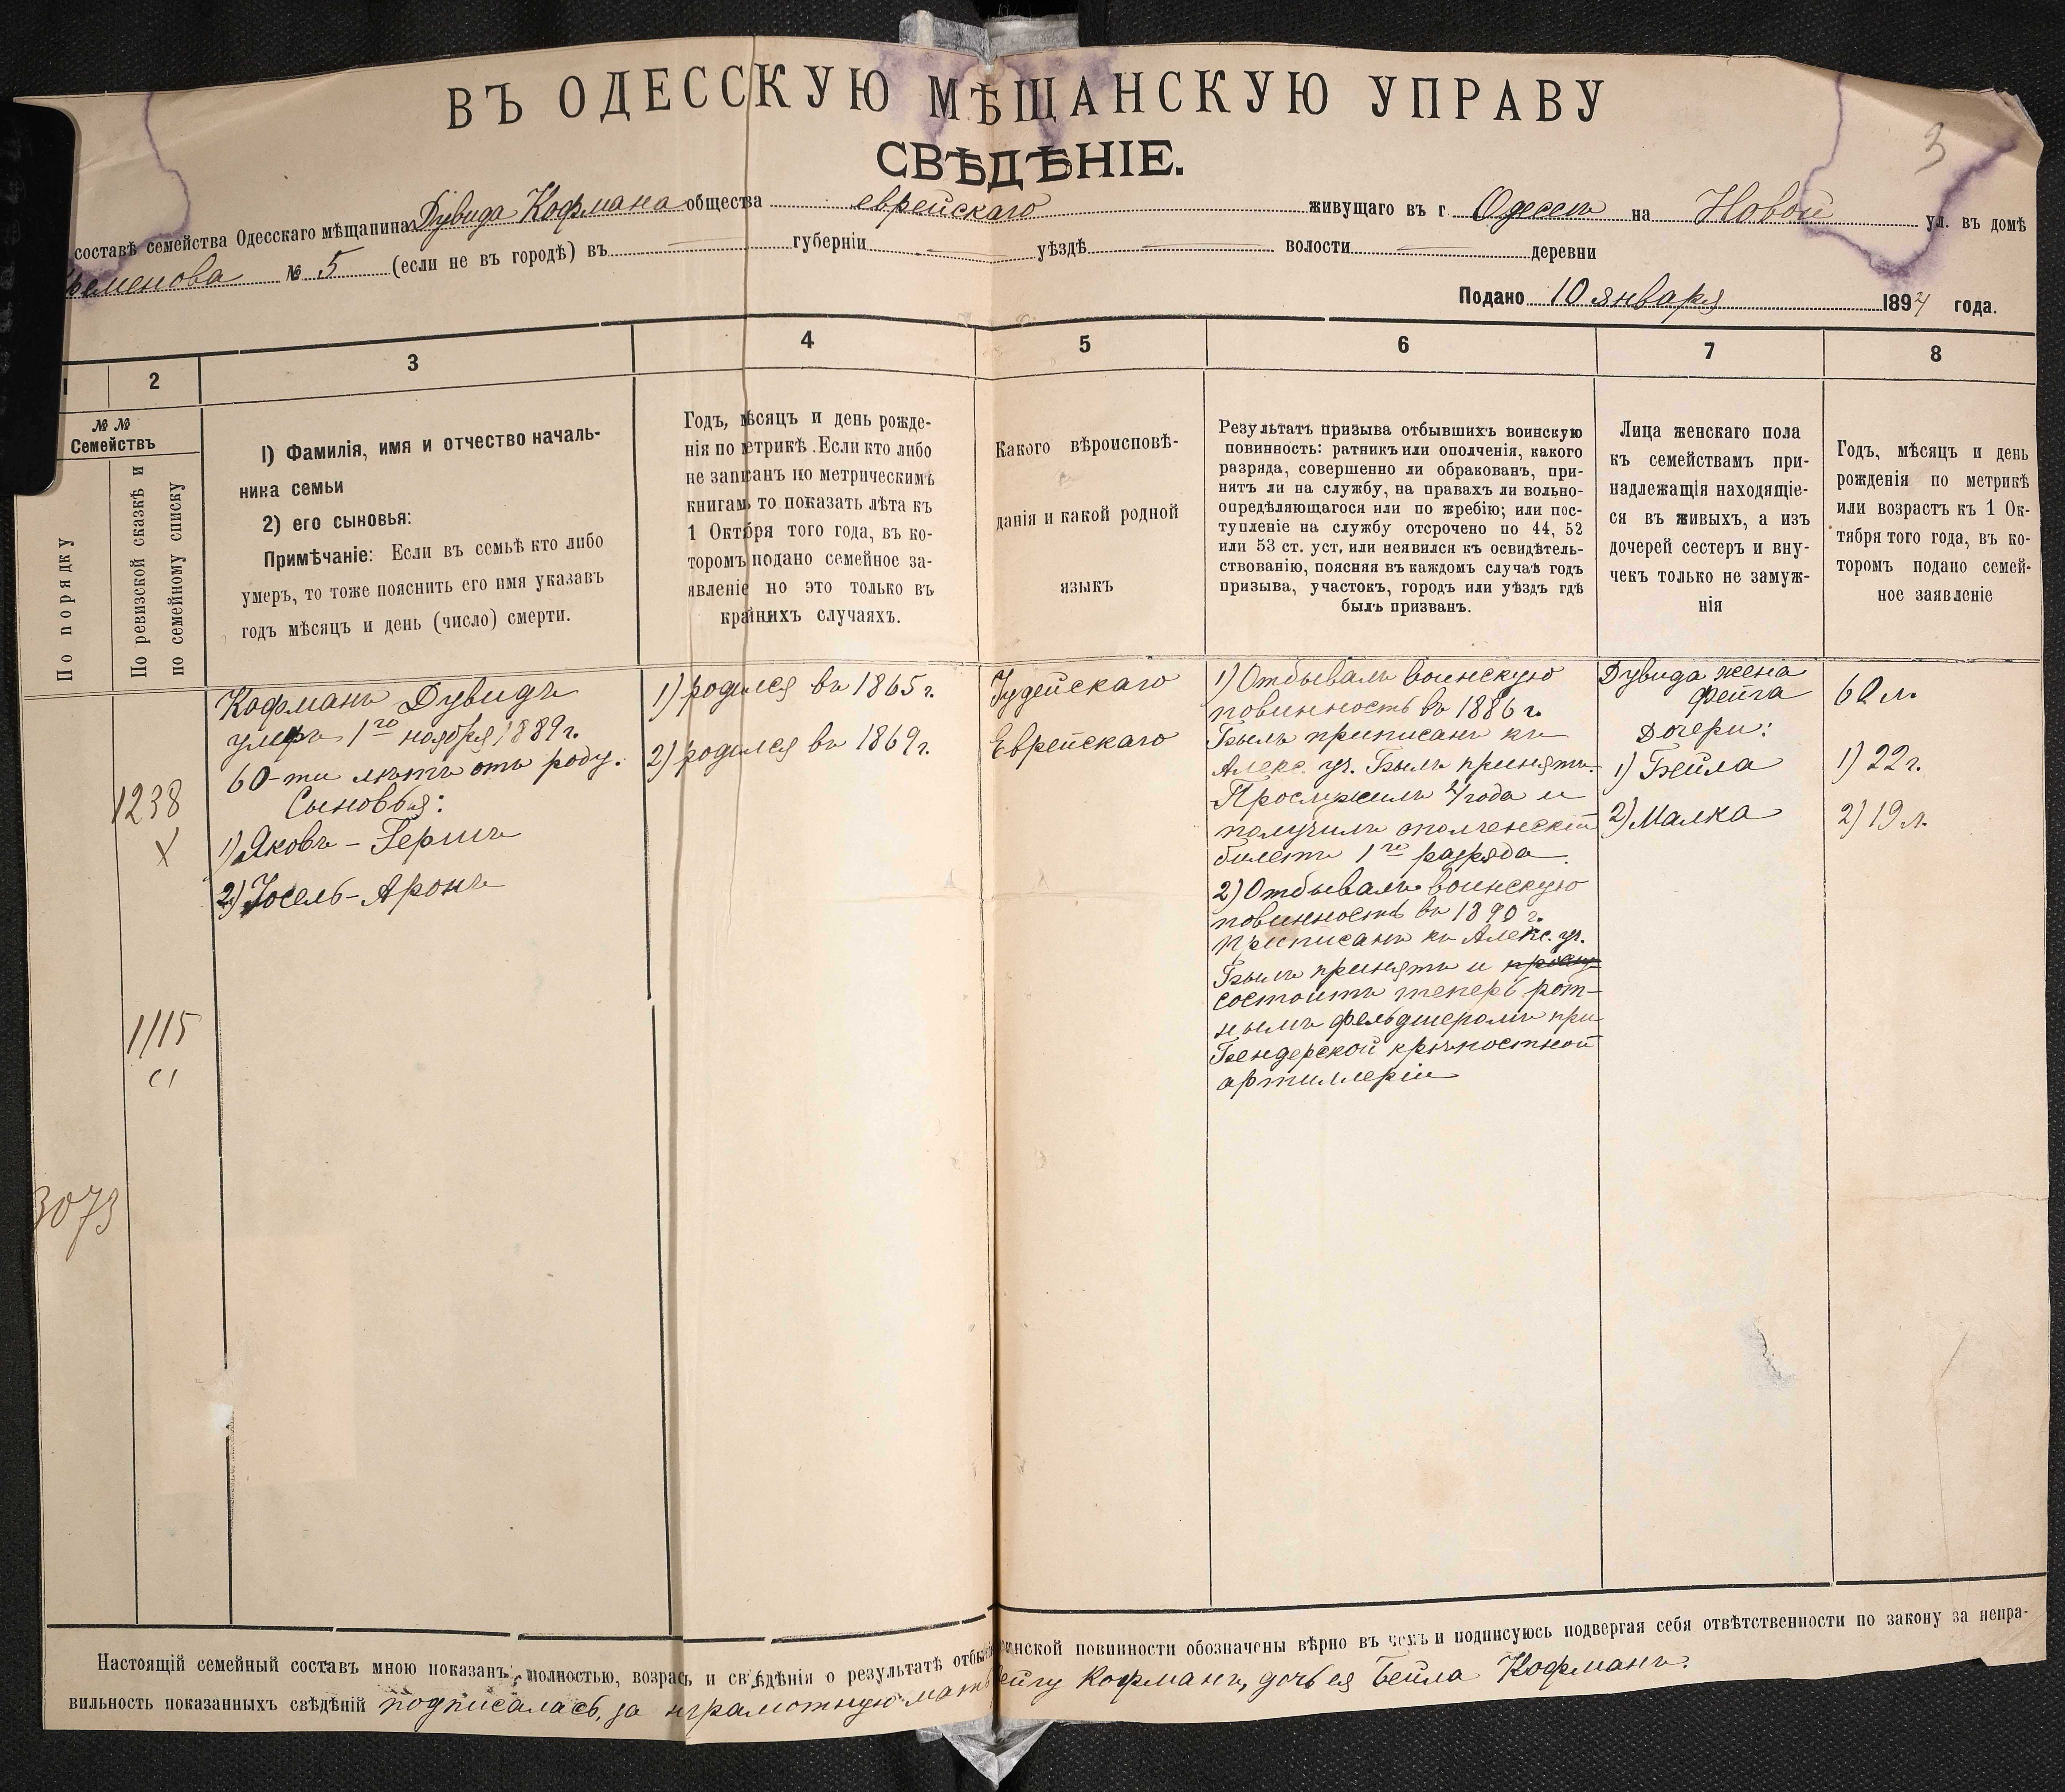 ВЪ ОДЕССКУЮ МѢЩАНСКУЮ УПРАВУ
СВѢДѢНІЕ.
3
составѣ семейства Одесскаго мѣщанина Дувида Кофмана общества еврейскаго живущаго въ г. Одессѣ на Новой ул. въ домѣ
№ 5 (если не въ городѣ) въ губерніи уѣздѣ волости деревни
Подано 10 января 1894 года.
1 2 3 4 5 6 7 8
№ №
Семействъ
По порядку
По ревизской сказкѣ и
по семейному списку
1) Фамилія, имя и отчество началь-
ника семьи
2) его сыновья:
Примѣчаніе: Если въ семьѣ кто либо
умеръ, то тоже пояснить его имя указавъ
годъ мѣсяцъ и день (число) смерти.
Годъ, мѣсяцъ и день рожде-
нія по метрикѣ. Если кто либо
не записанъ по метрическимъ
книгамъ то показать лѣта къ
1 Октября того года, въ ко-
торомъ подано семейное за-
явленіе но это только въ
крайнихъ случаяхъ.
Какого вѣроисповѣ-
данія и какой родной
языкъ
Результатъ призыва отбывшихъ воинскую
повинность: ратникъ или ополченія, какого
разряда, совершенно ли обракованъ, при-
нятъ ли на службу, на правахъ ли вольно-
опредѣляющагося или по жребію; или пос-
тупленіе на службу отсрочено по 44, 52
или 53 ст. уст, или неявился къ освидѣтель-
ствованію, поясняя въ каждомъ случаѣ годъ
призыва, участокъ, городъ или уѣздъ гдѣ
былъ призванъ.
Лица женскаго пола
къ семействамъ при-
надлежащія находящіе-
ся въ живыхъ, а изъ
дочерей сестеръ и вну-
чекъ только не замуж-
нія
Годъ, мѣсяцъ и день
рожденія по метрикѣ
или возрастъ къ 1 Ок-
тября того года, въ ко-
торомъ подано семей-
ное заявленіе
1238
X
1115
3073
Кофманъ Дувидъ
умеръ 1го ноября 1889 г.
60-ти лѣтъ отъ роду.
Сыновья:
1) Яковъ - Гершъ
2) Іосель - Аронъ
1) родился въ 1865 г.
2) родился въ 1869 г.
Іудейскаго
Еврейскаго
1) Отбывалъ воинскую
повинность въ 1886 г.
Былъ приписанъ къ
Алекс. уч. Былъ принятъ.
Прослужилъ 4 года и
получилъ ополченскій
билетъ 1го разряда.
2) Отбывалъ воинскую
повинность въ 1890 г.
Приписанъ къ Алекс. уч.
Былъ принятъ и
состоитъ теперь рот-
нымъ фельдшеромъ при
Бендерской крѣпостной
артиллеріи
Дувида жена
Фейга
Дочери:
1) Бейла
2) Малка
60 л.
1) 22 г.
2) 19 л.
Настоящій семейный составъ мною показанъ полностью, возрасъ и свѣдѣнія о результатѣ отбы инской повинности обозначены вѣрно въ чемъ и подписуюсь подвергая себя отвѣтственности по закону за непра-
вильность показанныхъ свѣдѣній подписалась, за неграмотную мать Фейгу Кофманъ, дочь ея Бейла Кофманъ.